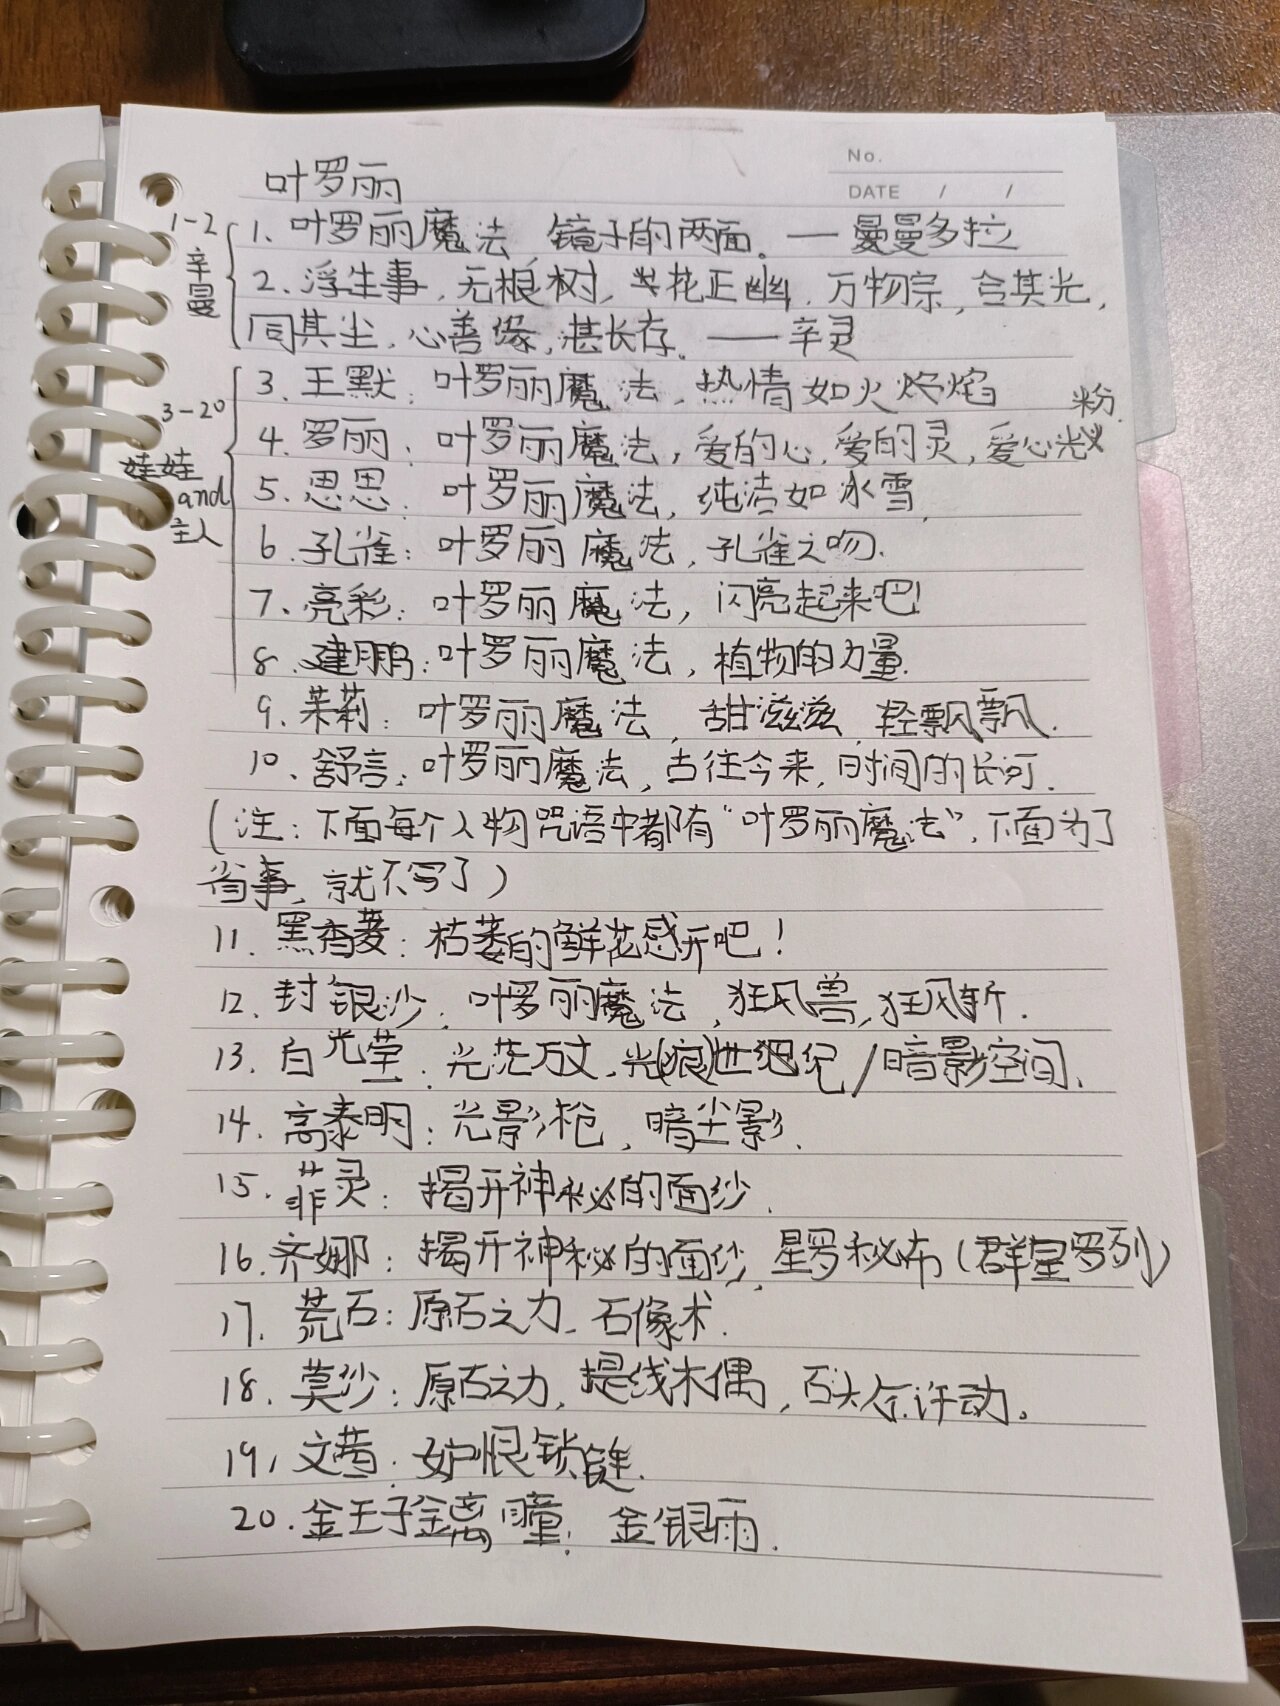 No.
DATE / /
叶罗丽
1-2
辛
曼
1、叶罗丽魔法 镜子的两面。— 曼曼多拉
2、浮生事,无根树,花正幽,万物宗,合其光,
同其尘,心善缘,湛长存。——辛灵
3-20
娃娃
and
主人
3、王默:叶罗丽魔法,热情如火焰
粉
4、罗丽:叶罗丽魔法,爱的心,爱的灵,爱心光
5、思思:叶罗丽魔法,纯洁如冰雪
6、孔雀:叶罗丽魔法,孔雀之吻.
7、亮彩:叶罗丽魔法,闪亮起来吧!
8、建鹏:叶罗丽魔法,植物的力量.
9、茉莉:叶罗丽魔法,甜滋滋,轻飘飘.
10、舒言:叶罗丽魔法,古往今来,时间的长河.
(注:下面每个人物咒语中都有“叶罗丽魔法”,下面为了
省事,就不写了)
11、黑香菱:枯萎的鲜花感开吧!
12、封银沙:叶罗丽魔法,狂风兽,狂风斩.
13、白光莹:光芒万丈,光(痕)世纪/暗影空间.
14、高泰明:光影枪,暗尘影.
15.菲灵:揭开神秘的面纱.
16.齐娜:揭开神秘的面纱,星罗秘布(群星罗列)
17.荒石:原石之力,石像术.
18.莫沙:原石之力,提线木偶,石头尔许动。
19,文茜:妒恨锁链.
20.金王子金离瞳:金银雨.